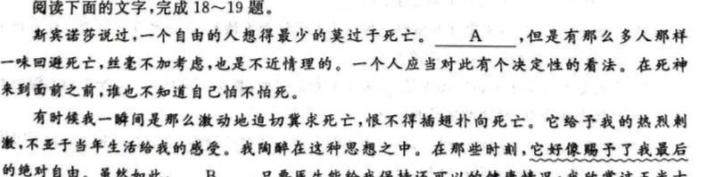 阅读下面的文字,完成18～19题。
斯宾诺莎说过,一个自由的人想得最少的莫过于死亡。 A ,但是有那么多人那样
一味回避死亡,丝毫不加考虑,也是不近情理的。一个人应当对此有个决定性的看法。在死神
来到面前之前,谁也不知道自己怕不怕死。
有时候我一瞬间是那么激动地迫切冀求死亡,恨不得插翅扑向死亡。它给予我的热烈刺
激,不亚于当年生活给我的感受。我陶醉在这种思想之中。在那些时刻,它好像赐予了我最后
的绝对自由。虽然如此, B